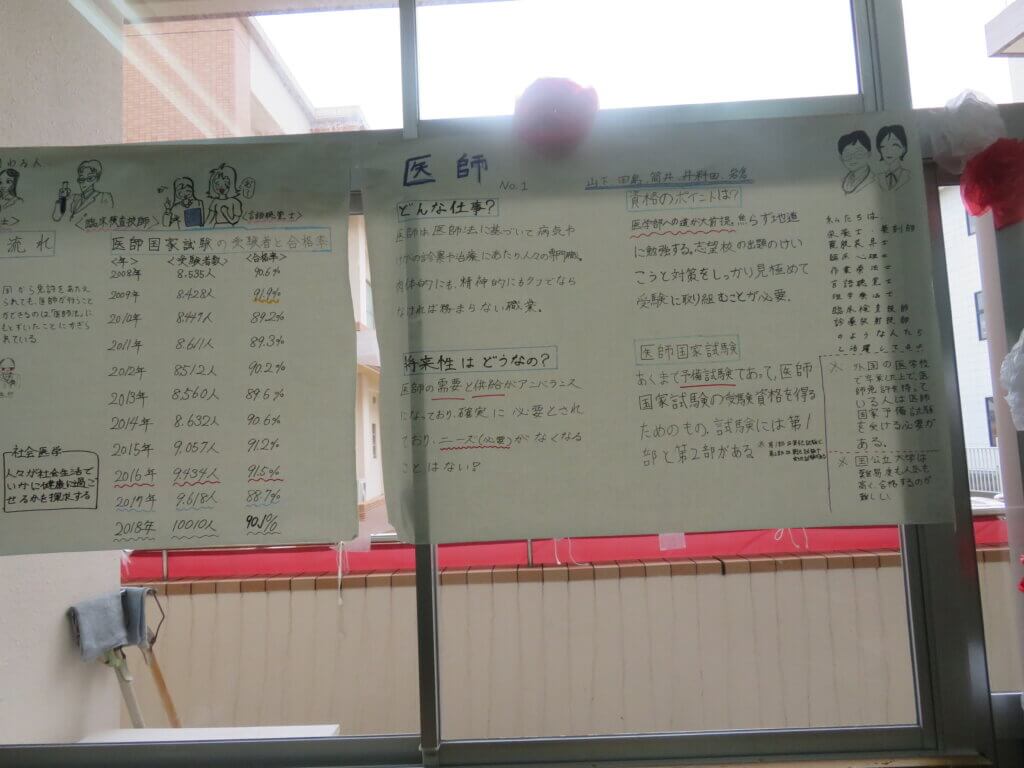 医師
No.1
山下 田島 筒井 井料田 谷倉
どんな仕事?
医師は医師法に基づいて病気や
けがの診察や治療にあたり人々の専門職。
肉体的にも、精神的にもタフでなら
なければ務まらない職業。
将来性はどうなの?
医師の需要と供給がアンバランス
になっており、確実に必要とされ
ており、ニーズ(必要)がなくなる
ことはない?
資格のポイントは?
医学部への道が大前提。焦らず地道
に勉強する。志望校の出題のけい
こうと対策をしっかり見極めて
受験に取り組むことが必要。
医師国家試験
あくまで予備試験であって、医師
国家試験の受験資格を得る
ためのもの。試験には第1
部と第2部がある
私たちは、
栄養士 薬剤師
視能訓練士
臨床心理士
作業療法士
言語聴覚士
理学療法士
臨床検査技師
診療放射線技師
のような人たち
と活躍
※ 外国の医学校
で卒業した上で、医
師免許を持って
いる人は医師
国家予備試験
を受ける必要が
ある。
※ 国公立大学は
難易度も人気も
高く、合格するのが
難しい
わる人
<臨床検査技師>
<言語聴覚士>
流れ
国から免許をあたえ
られても、医師が行うこと
ができるのは、「医師法」に
もとずいたことにかぎら
れている
社会医学
人々が社会生活で
いかに健康に過ご
せるかを探求する
医師国家試験の受験者と合格率
<年> <受験者数> <合格率>
2008年 8.535人 90.6%
2009年 8.428人 91.9%
2010年 8.447人 89.2%
2011年 8.611人 89.3%
2012年 8512人 90.2%
2013年 8.560人 89.6%
2014年 8.632人 90.6%
2015年 9.057人 91.2%
2016年 9.434人 91.5%
2017年 9.618人 88.7%
2018年 10010人 90.1%